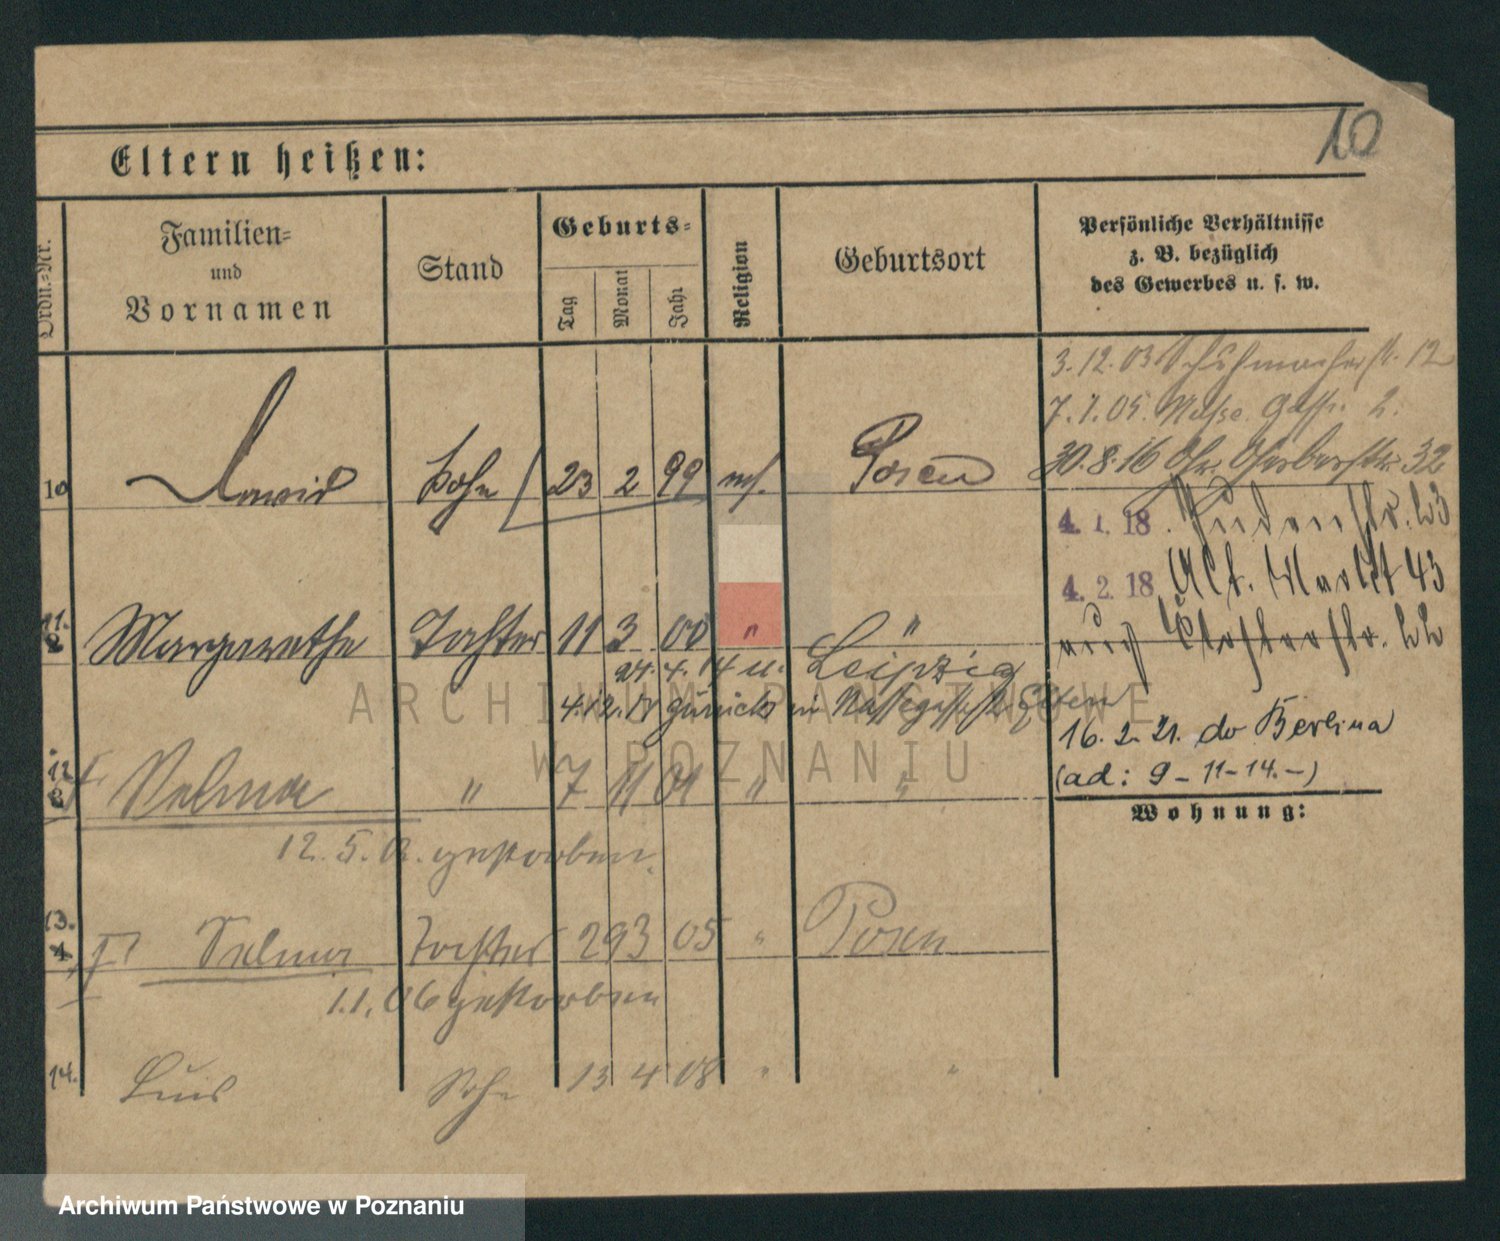 10
Eltern heißen:
Ordn.-Nr.
Familien-
und
Vornamen
Stand
Geburts-
Tag
Monat
Jahr
Religion
Geburtsort
Persönliche Verhältnisse
z. B. bezüglich
des Gewerbes u. s. w.
3.12.03 Schuhmacherstr. 12
7.1.05. Nasse Gasse 2.
30.8.16 32
10 David Sohn 23 2 99 Posen
4.1.18. Judenstr. 23
4.2.18 Alt. Markt 43
11. Margarethe Tochter 11 3 00 " "
Klosterstr. 22
27. 4. 14 u. Leipzig
4.12.17 zurück in Nassegasse 2 Eltern
16.2.21. do Berlina
(ad: 9-11-14.-)
12 Selma " 7 11 01 " "
Wohnung:
12.5.02. gestorben.
13. Selma Tochter 29 3 05 " Posen
1.1.06 gestorben
14. Luis Sohn 13 4 08 " "
ARCHIWUM PAŃSTWOWE
W POZNANIU
Archiwum Państwowe w Poznaniu